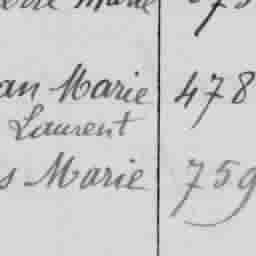 Marie
an Marie 478
Laurent
s Marie 759